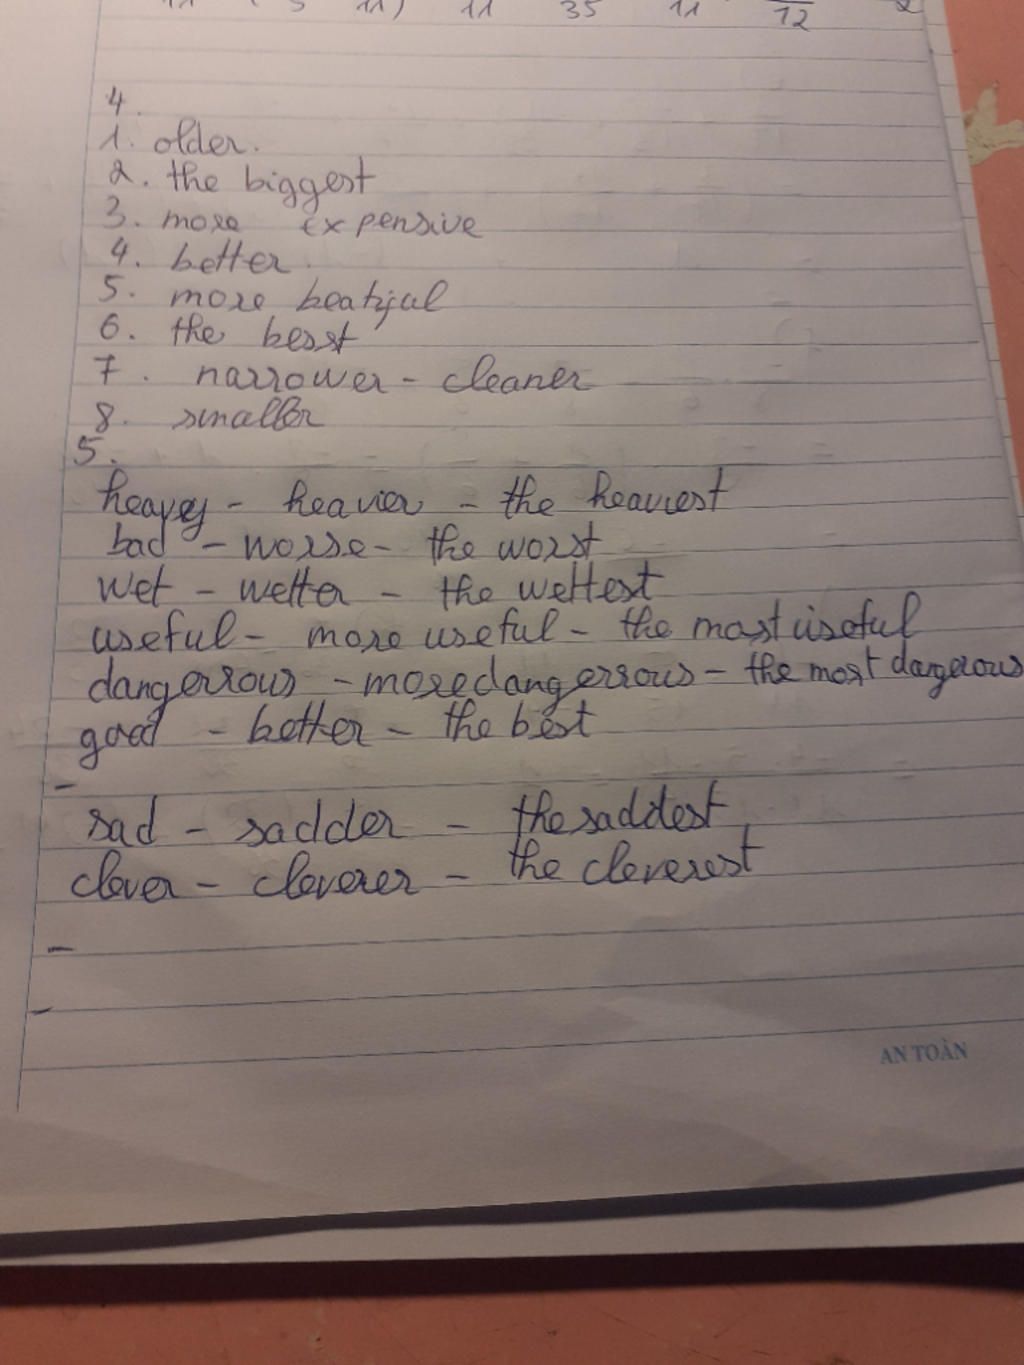 11 5 11) 11 35 11 12 2
4.
1. older.
2. the biggest
3. more expensive
4. better.
5. more beatiful
6. the besst
7. narrower - cleaner
8. smaller
5.
heavey - heavier - the heaviest
bad - worse - the worst
wet - wetter - the wettest
useful - more useful - the most useful
dangerrous - more dangerrous - the most dangerous
good - better - the best
-
sad - sadder - the saddest
clever - cleverer - the cleverest
-
-
AN TOÀN